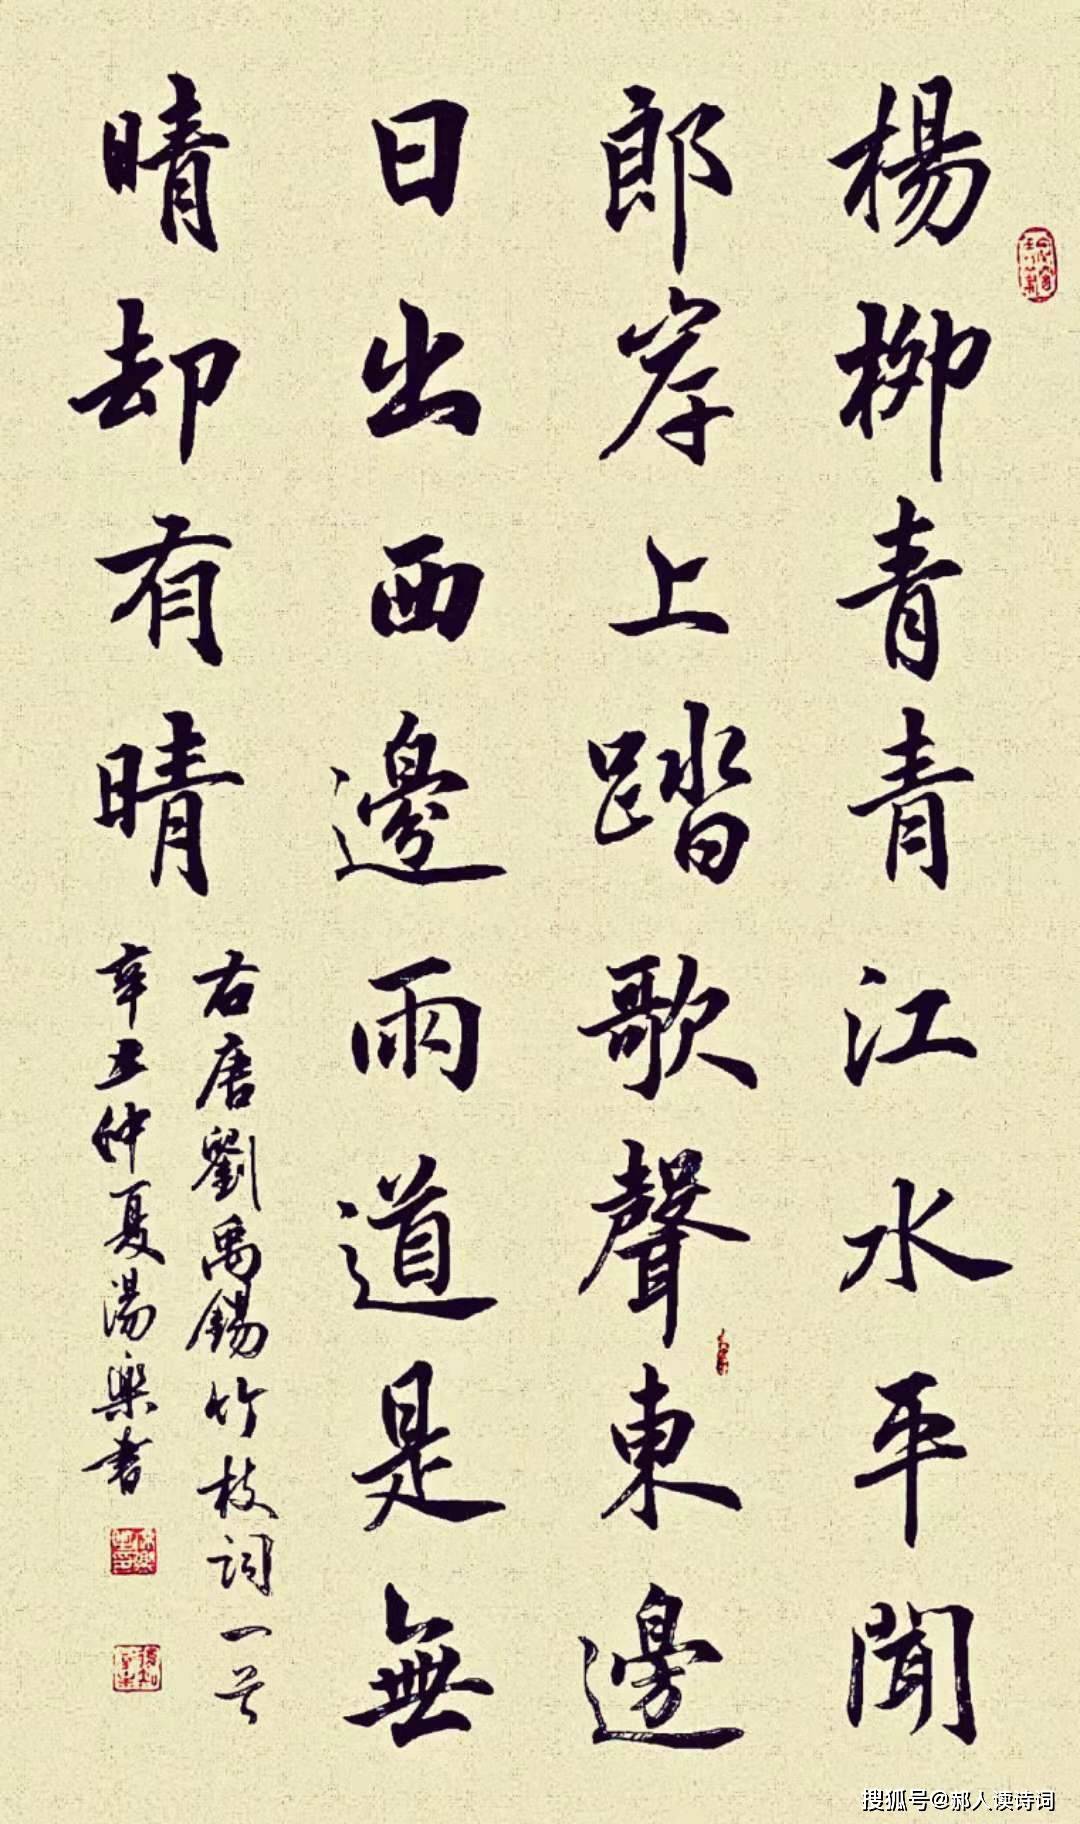 楊柳青青江水平聞
郎岸上踏歌聲東邊
日出西邊雨道是無
晴却有晴
右唐劉禹錫竹枝詞一首
辛丑仲夏湯樂書
搜狐号@郝人读诗词